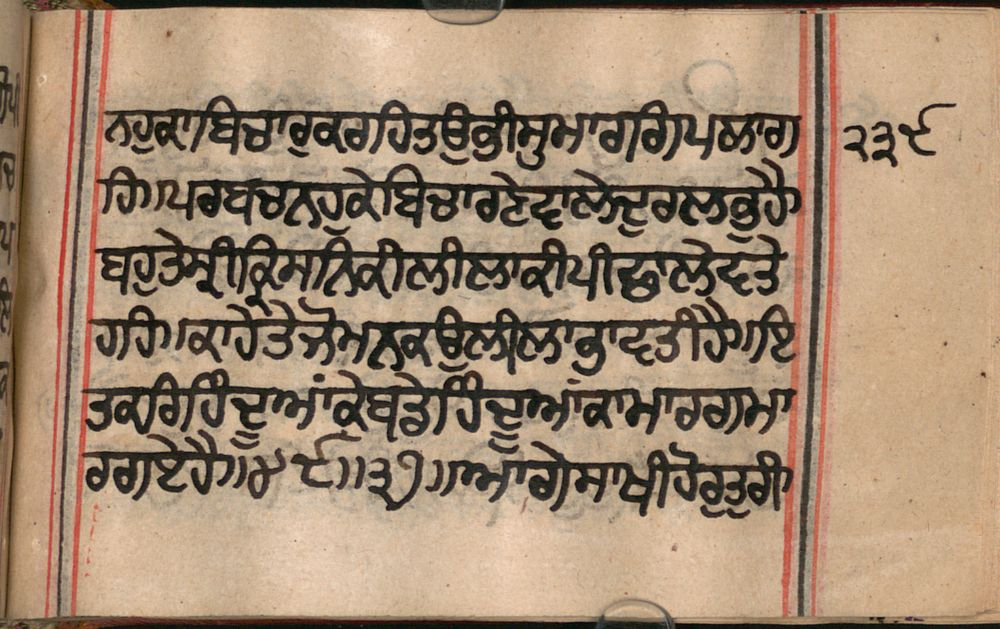 ਨਹੁਕਾਬਿਚਾਰੁਕਰਹਿਤਉਭੀਸੁਮਾਰਗਿਪਲਾਗ
ਹਿ॥ਪਰਬਚਨਹੁਕੇਬਿਚਾਰਣੇਵਾਲੇਦੁਰਲਭੁਹੈ
ਬਹੁਤੇਸ੍ਰੀਕ੍ਰਿਸਨਿਕੀਲੀਲਾਕੀਪੀਛਾਲੇਵਤੇ
ਹਹਿ॥ਕਾਹੇਤੇਜੋਮਨਕਉਲੀਲਾਭਾਵਤੀਹੈ॥ਇ
ਤਕਰਿਹਿੰਦੂਆਂਕੇਬਡੇਹਿੰਦੂਆਂਕਾਮਾਰਗਮਾ
ਰਗਏਹੈ॥੪੯॥੩੭॥ਆਗੇਸਾਖੀਹੋਰੁਤੁਰੀ
੨੩੯